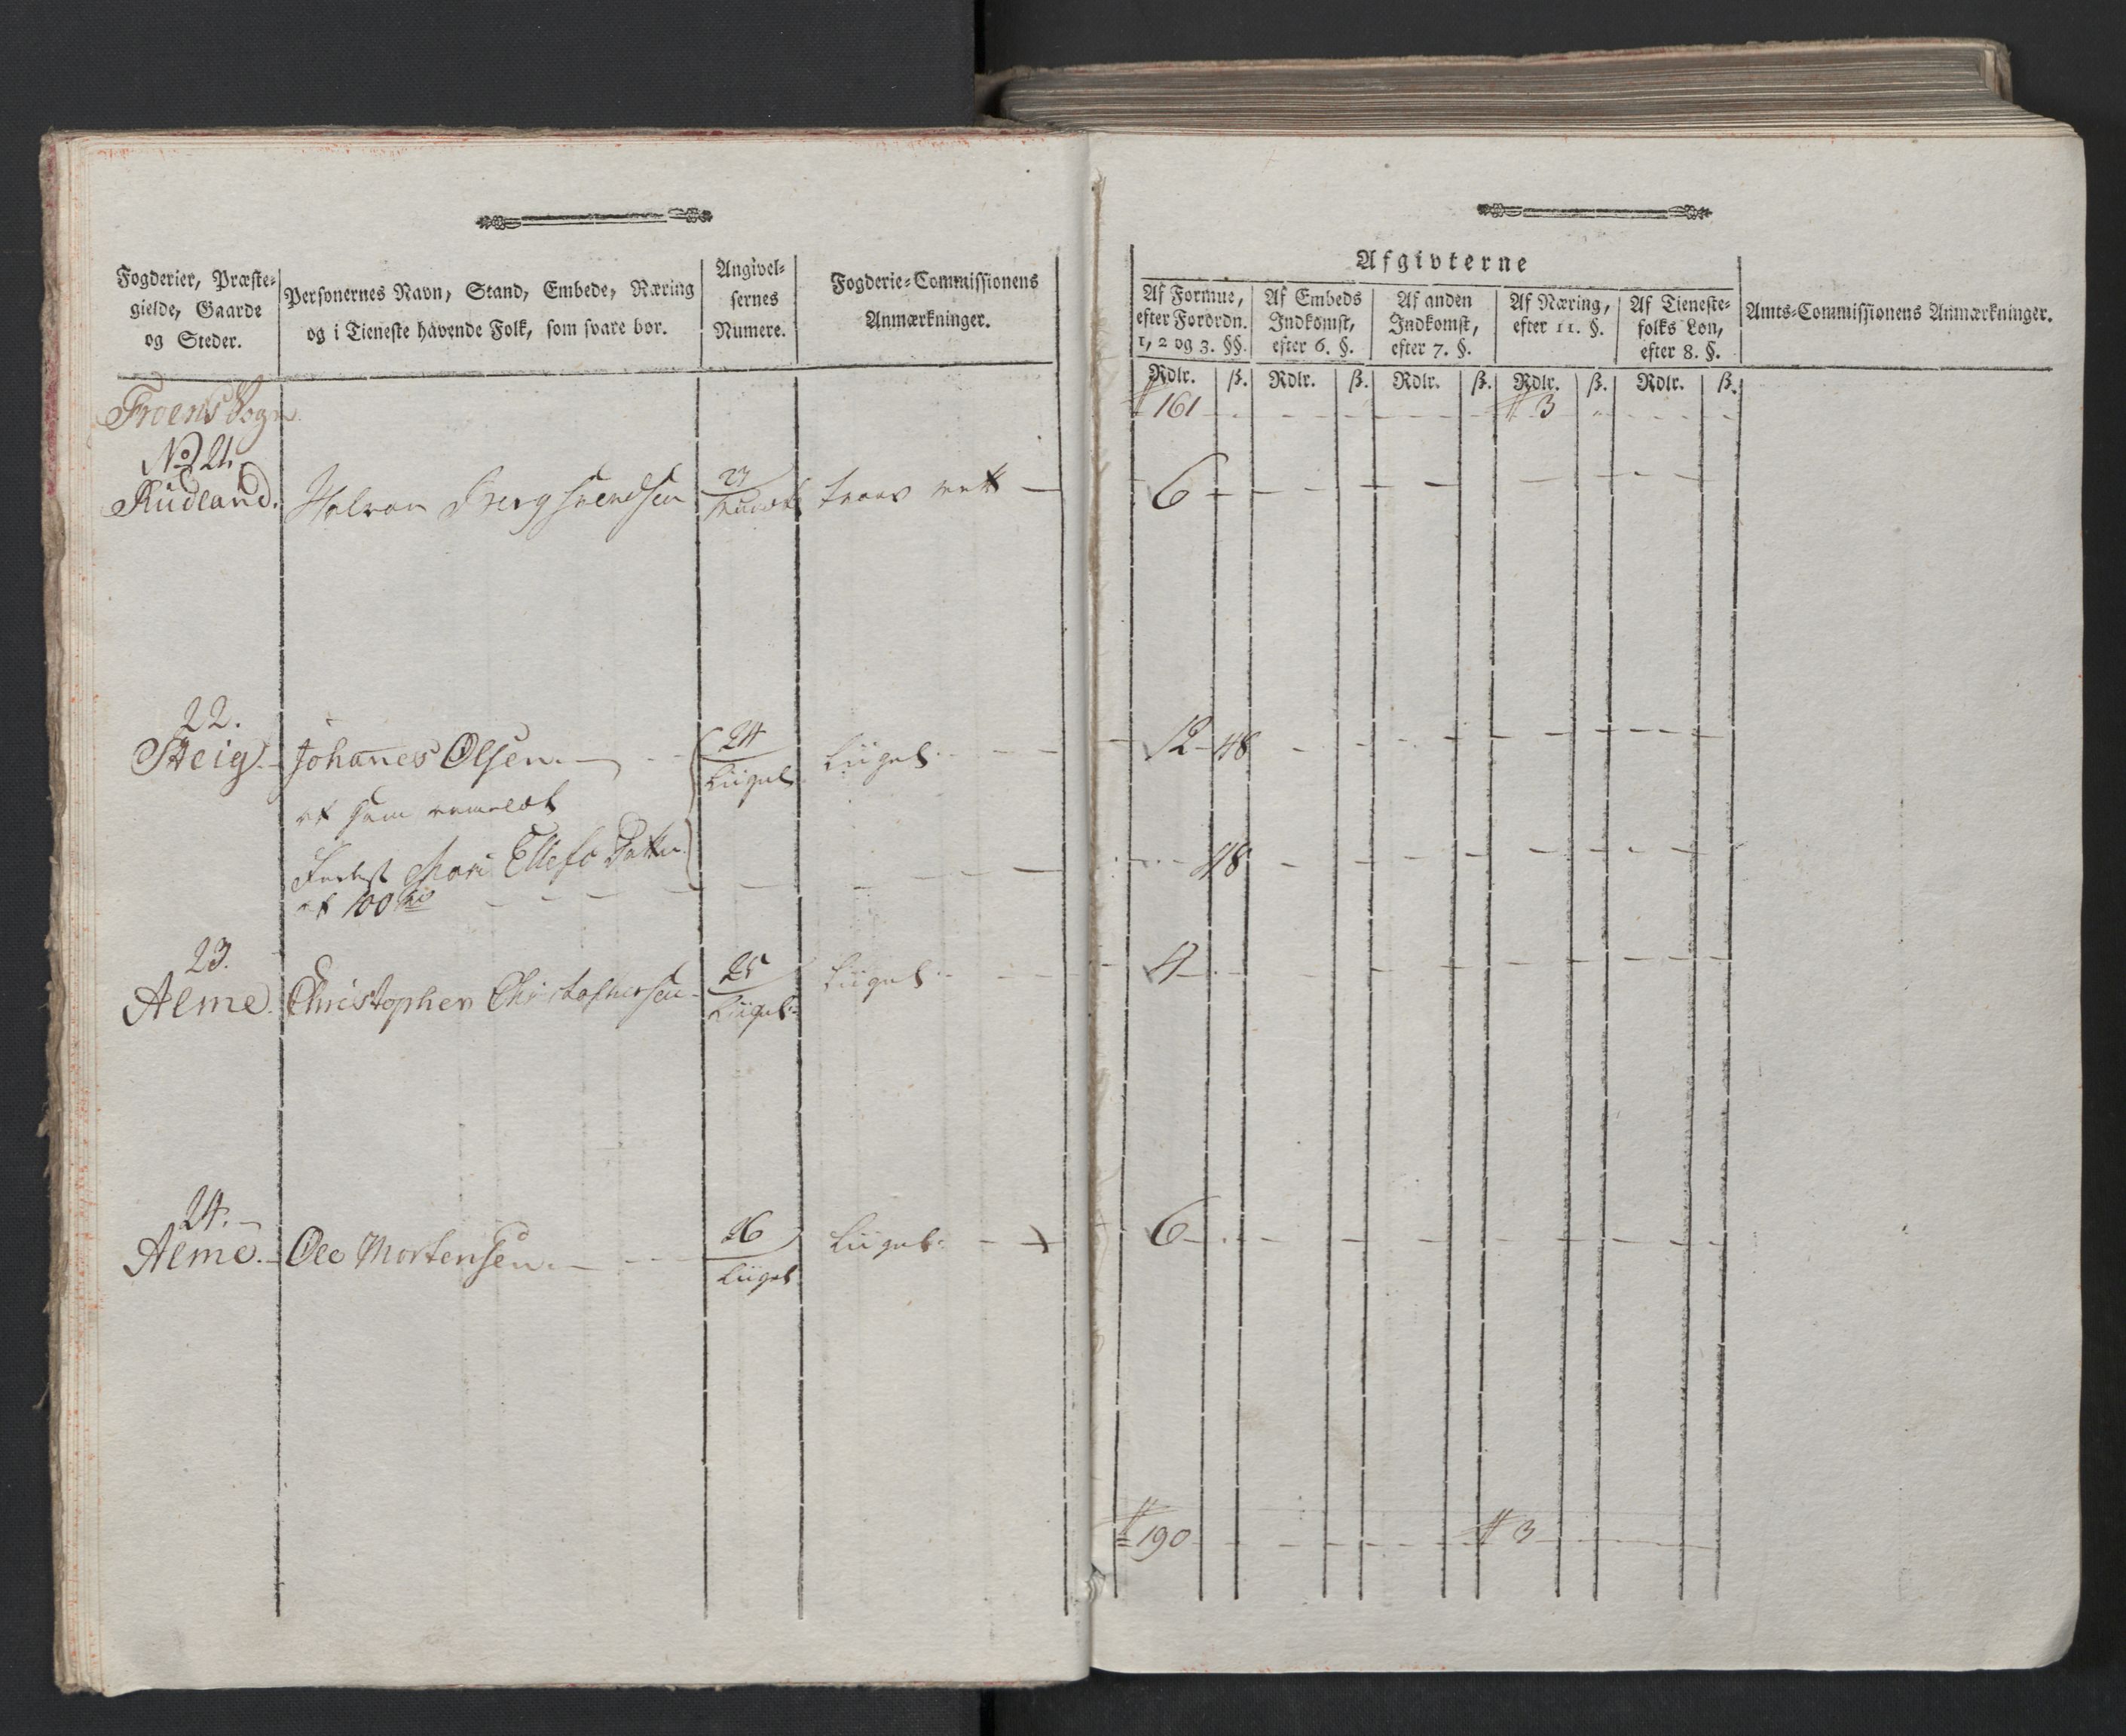 Fogderier, Præste-
gielde, Gaarde
og Steder.
Personernes Navn, Stand, Embede, Næring
og i Tieneste havende Folk, som svare bør.
Angivel-
sernes
Numere.
Fogderie-Commissionens
Anmærkninger.
Froens Sogn
No 21.
Rudland.
Halvor
23
rett —
22.
Steig. Johannes Olsen. —
24
Liigel
Liigel.
et
Mari Ellefs Datter
af 100 rd
23.
Alme. Christopher Christophersen
25
Liigel.
Liigel.
24. —
Alme. Ole Mortensen. —
26
Liigel
Liigel.
Afgivterne
Af Formue,
efter Forordn.
1, 2 og 3. §§.
Af Embeds
Indkomst,
efter 6. §.
Af anden
Indkomst,
efter 7. §.
Af Næring,
efter 11. §.
Af Tieneste-
folks Løn,
efter 8. §.
Amts-Commissionens Anmærkninger.
Rdlr. ß. Rdlr. ß. Rdlr. ß. Rdlr. ß. Rdlr. ß.
161 3
6
12 48
48
4
6
190 3